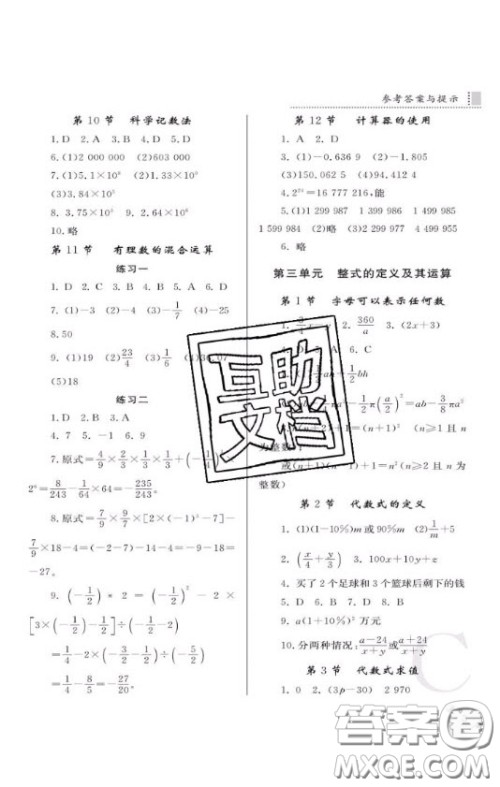 参考答案与提示
第10节 科学记数法
1.D 2.A 3.B 4.D 5.D
6.(1)2 000 000 (2)603 000
7.(1)5.1×10⁸ (2)1.33×10⁹
(3)3.84×10⁵
8. 3.75×10⁵ 9. 2.64×10⁵
10.略
第11节 有理数的混合运算
练习一
1.D 2.C 3.B 4.D 5.D 6.B
7.(1)-3 (2)-4 (3)-1/7 (4)-25
8.50
9.(1)19 (2)23/4 (3)1/6
(5)18
练习二
1.D 2.B 3.A
4.7 5.-1 6.9
7.原式=4/9×2/3×1/3
=8/243-1/64×64=-235/243.
8.原式=7/9×[2×(-1)³-7]-
7/9×18-4=(-2-7)-14-4=-9-18=
-27.
9.(-1/2)*2=(-1/2)²-2×
[3×(-1/2)-1]÷(-5/2)
=1/4-2×(-3/2-1)÷(-5/2)
=1/4-8/5=-27/20.
第12节 计算器的使用
1.A 2.D
3.(1)-0.636 9 (2)-1.805
(3)150.062 5 (4)94.412 4
4. 2²⁴=16 777 216,能
5.(1)1 299 987 1 399 986 1 499 985
1 599 984 (2)略 (3)1 899 981
6.略
第三单元 整式的定义及其运算
第1节 字母可以表示任何数
2. 360/a 3.(2x+3)
6.C
bh
π(a/2)²=ab-3/8πa²
(n+1) (n≥1且n
为整数)
或(n+1)(n-1)+1 (n≥1且n为
整数)
第2节 代数式的定义
1.(1)(1-10%)m或90%m (2)1/m+5
2.(x/4+y/3) 3. 100x+10y+z
4.买了2个足球和3个篮球后剩下的钱
5.D 6.B 7.D 8.D
9. a(1+10%)²万元
10.分两种情况:a-24/x+y或a+24/x+y
第3节 代数式求值
1.0 2.(3p-30) 2 970
互助
文档
答案圈